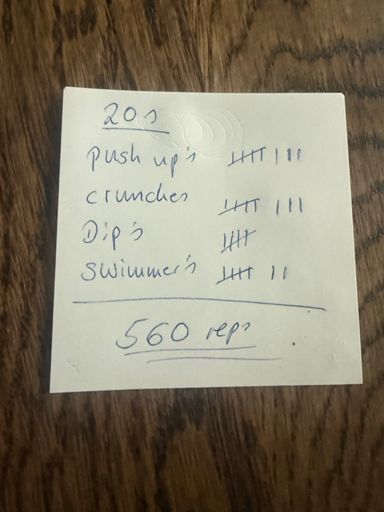 20s
push up's 𝍸 |||
crunches 𝍸 |||
Dip's 𝍸
swimmer's 𝍸 ||
560 reps